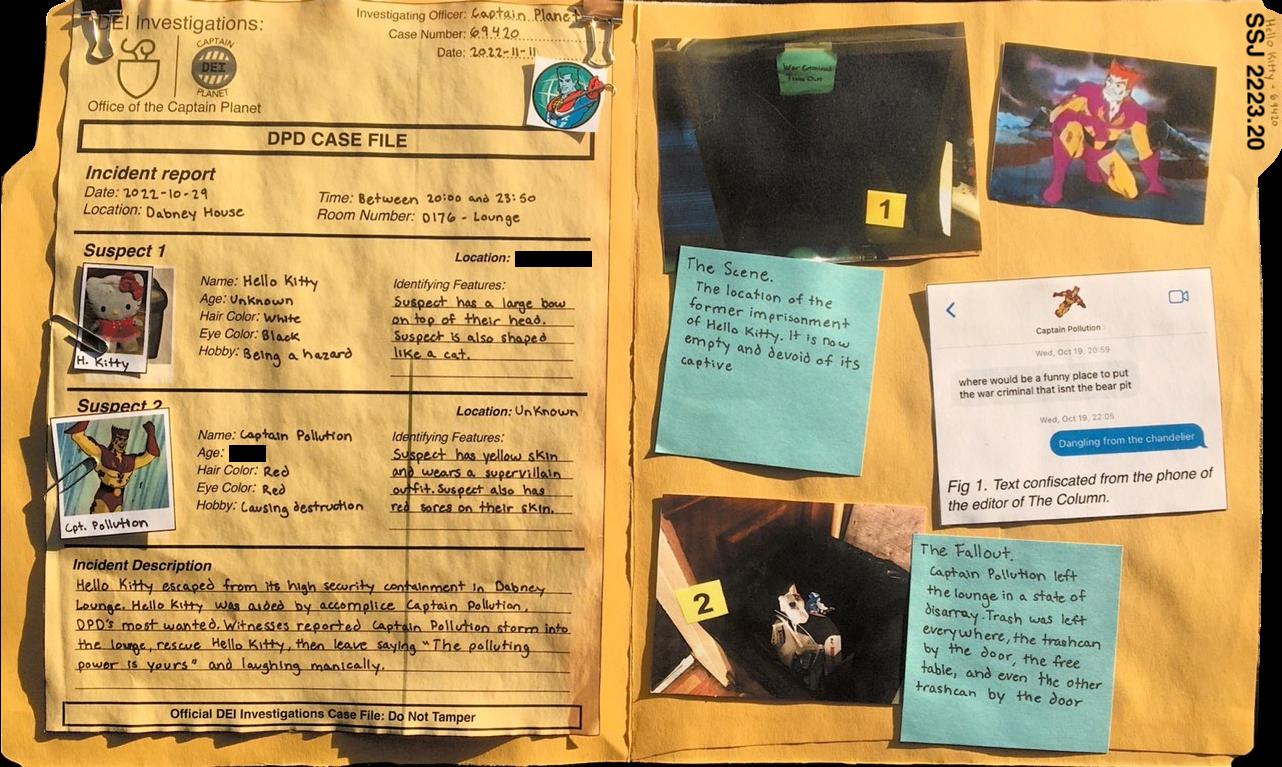 DEI Investigations:
CAPTAIN
DEI
PLANET
Office of the Captain Planet
Investigating Officer: Captain Planet
Case Number: 69420
Date: 2022-11-11
DPD CASE FILE
Incident report
Date: 2022-10-29
Time: Between 20:00 and 23:50
Location: Dabney House
Room Number: D176 - Lounge
Suspect 1
Location:
H. Kitty
Name: Hello Kitty
Age: Unknown
Hair Color: White
Eye Color: Black
Hobby: Being a hazard
Identifying Features:
Suspect has a large bow
on top of their head.
Suspect is also shaped
like a cat.
Suspect 2
Location: Unknown
Cpt. Pollution
Name: Captain Pollution
Age:
Hair Color: Red
Eye Color: Red
Hobby: Causing destruction
Identifying Features:
Suspect has yellow skin
and wears a supervillain
outfit. Suspect also has
red sores on their skin.
Incident Description
Hello Kitty escaped from its high security containment in Dabney
Lounge. Hello Kitty was aided by accomplice Captain Pollution,
DPD's most wanted. Witnesses reported Captain Pollution storm into
the lounge, rescue Hello Kitty, then leave saying "The polluting
power is yours" and laughing manically.
Official DEI Investigations Case File: Do Not Tamper
War Criminal
Time Out
1
The Scene.
The location of the
former imprisonment
of Hello Kitty. It is now
empty and devoid of its
captive
Captain Pollution
Wed, Oct 19, 20:59
where would be a funny place to put
the war criminal that isnt the bear pit
Wed, Oct 19, 22:05
Dangling from the chandelier
Fig 1. Text confiscated from the phone of
the editor of The Column.
2
The Fallout.
Captain Pollution left
the lounge in a state of
disarray. Trash was left
everywhere, the trashcan
by the door, the free
table, and even the other
trashcan by the door
Hello Kitty - 69420
SSJ 2223.20